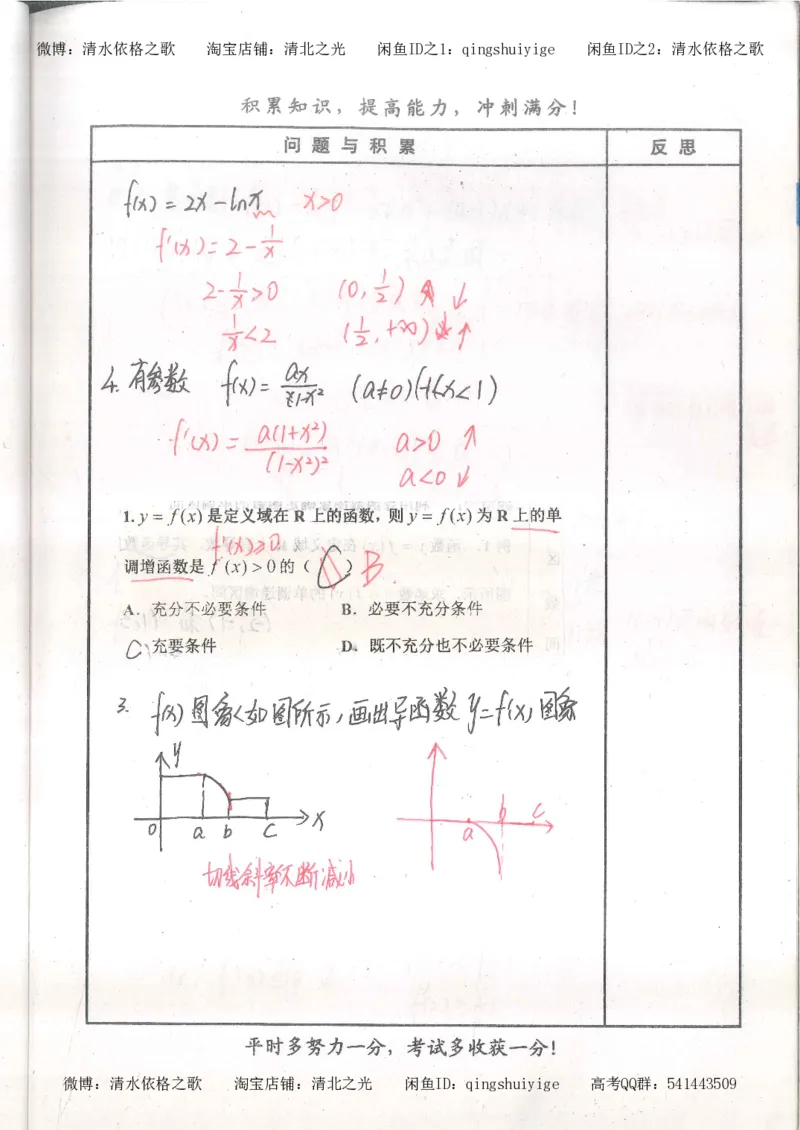 微博：清水依格之歌 淘宝店铺：清北之光 闲鱼ID之1：qingshuiyige 闲鱼ID之2：清水依格之歌
积累知识，提高能力，冲刺满分！
问题与积累 反思
f(x)=2x-lnx x>0
f'(x)=2-1/x
2-1/x>0 (0,1/2) ↓
1/x<2 (1/2,+∞) ↑
4.有参数 f(x)=ax/(1-x²) (a≠0)(-1<x<1)
f'(x)=a(1+x²)/(1-x²)² a>0 ↑
a<0 ↓
1.y=f(x)是定义域在R上的函数，则y=f(x)为R上的单
f'(x)≥0
调增函数是f'(x)>0的（C）B.
A.充分不必要条件 B.必要不充分条件
C充要条件 D.既不充分也不必要条件
3. f(x)图象如图所示，画出导函数y=f'(x)图象
y
0 a b c x
a b c
切线斜率不断减小
平时多努力一分，考试多收获一分！
微博：清水依格之歌 淘宝店铺：清北之光 闲鱼ID：qingshuiyige 高考QQ群：541443509